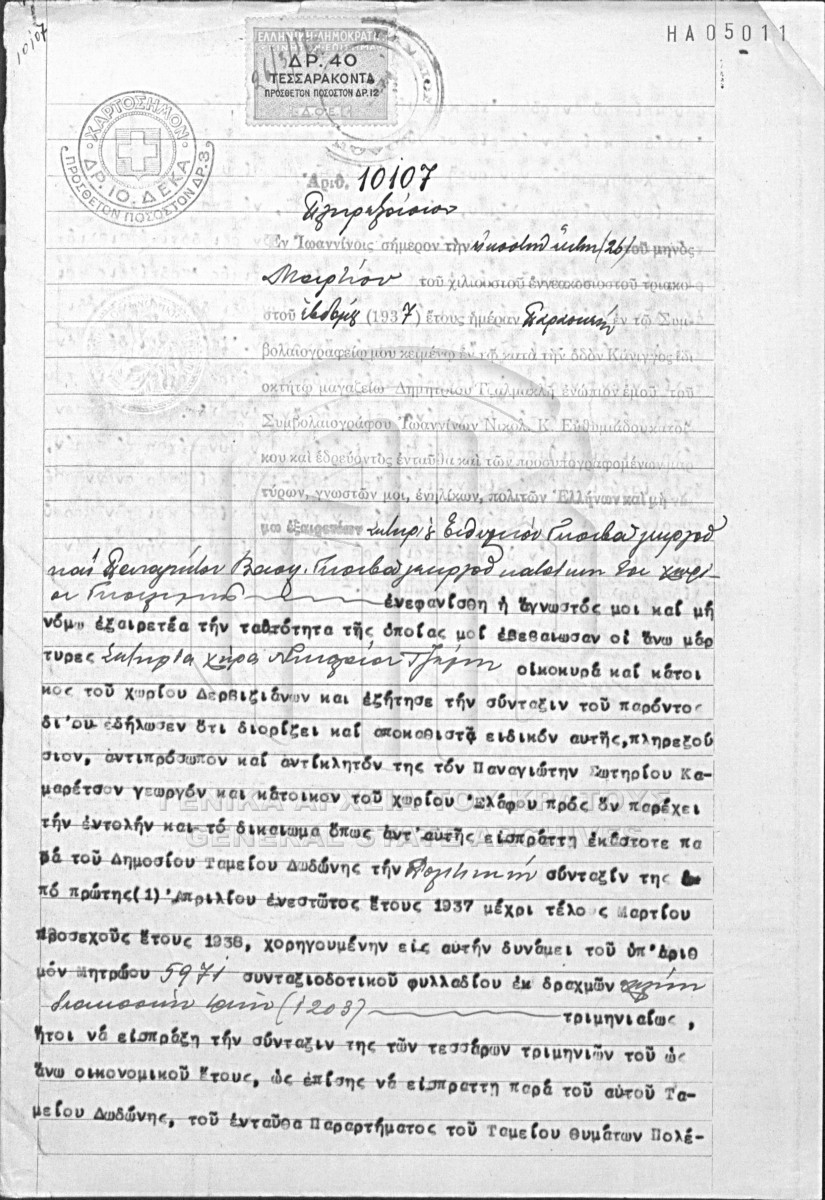 10107
ΗΑ05011
ΕΛΛΗΝΙΚΗ ΔΗΜΟΚΡΑΤΙΑ
ΔΡ. 40
ΤΕΣΣΑΡΑΚΟΝΤΑ
ΠΡΟΣΘΕΤΟΝ ΠΟΣΟΣΤΟΝ ΔΡ.12
ΧΑΡΤΟΣΗΜΟΝ
ΔΡ. 10. ΔΕΚΑ
ΠΡΟΣΘΕΤΟΝ ΠΟΣΟΣΤΟΝ ΔΡ.3
Ἀριθ. 10107
Πληρεξούσιον
Ἐν Ἰωαννίνοις σήμερον τὴν εἰκοστὴν ἕκτην (26) τοῦ μηνὸς
Μαρτίου τοῦ χιλιοστοῦ ἐννεακοσιοστοῦ τριακο-
στοῦ ἑβδόμου (1937) ἔτους ἡμέραν Παρασκευὴν ἐν τῷ Συμ-
βολαιογραφείῳ μου κειμένῳ ἐν τῷ κατὰ τὴν ὁδὸν Κάνιγγος ἰδι-
οκτήτῳ μαγαζείῳ Δημητρίου Τζαλμακλῆ ἐνώπιον ἐμοῦ τοῦ
Συμβολαιογράφου Ἰωαννίνων Νικολ. Κ. Εὐθυμιάδου κατοί-
κου καὶ ἑδρεύοντος ἐνταῦθα καὶ τῶν προσυπογραφομένων μαρ-
τύρων, γνωστῶν μοι, ἐνηλίκων, πολιτῶν Ἑλλήνων καὶ μὴ νό-
μῳ ἐξαιρετέων Σωτηρίου Εὐθυμίου γεωργοῦ
καὶ Παναγιώτου Βασ. γεωργοῦ κατοίκων τοῦ χωρί-
ου ἐνεφανίσθη ἡ ἄγνωστός μοι καί μή
νόμῳ ἐξαιρετέα τήν ταὐτότητα τῆς ὁποίας μοί ἐβεβαίωσαν οἱ ἄνω μάρ
τυρες Σωτηρία χήρα οἰκοκυρά καί κάτοι
κος τοῦ χωρίου Δερβιζιάνων καί ἐζήτησε τήν σύνταξιν τοῦ παρόντος
δι'οὗ ἐδήλωσεν ὅτι διορίζει καί ἀποκαθιστᾷ εἰδικόν αὐτῆς,πληρεξού
σιον, ἀντιπρόσωπον καί ἀντίκλητόν της τόν Παναγιώτην Σωτηρίου Κα-
μαρέτσον γεωργόν καί κάτοικον τοῦ χωρίου Ἐλάφου πρός ὅν παρέχει
τήν ἐντολήν καί τό δικαίωμα ὅπως ἀντ'αὐτῆς εἰσπράττῃ ἑκάστοτε πα
ρά τοῦ Δημοσίου Ταμείου Δωδώνης τήν σύνταξίν της ἀ
πό πρώτης(1) Ἀπριλίου ἐνεστῶτος ἔτους 1937 μέχρι τέλους Μαρτίου
προσεχοῦς ἔτους 1938, χορηγουμένην εἰς αὐτήν δυνάμει τοῦ ὑπ'ἀριθ
μόν Μητρώου 5971 συνταξιοδοτικοῦ φυλλαδίου ἐκ δραχμῶν χιλίων
διακοσίων τριῶν (1203) τριμηνιαίως,
ἤτοι νά εἰσπράξῃ τήν σύνταξιν της τῶν τεσσάρων τριμηνιῶν τοῦ ὡς
ἄνω οἰκονομικοῦ ἔτους, ὡς ἐπίσης νά εἰσπράττῃ παρά τοῦ αὐτοῦ Τα-
μείου Δωδώνης, τοῦ ἐνταῦθα Παραρτήματος τοῦ Ταμείου Θυμάτων Πολέ-
ΓΕΝΙΚΑ ΑΡΧΕΙΑ ΤΟΥ ΚΡΑΤΟΥΣ
GENERAL STATE ARCHIVES